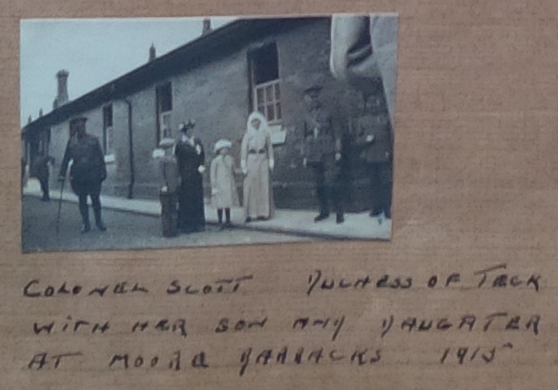 COLONEL SCOTT DUCHESS OF TECK
WITH HER SON AND DAUGHTER
AT MOORE BARRACKS 1915